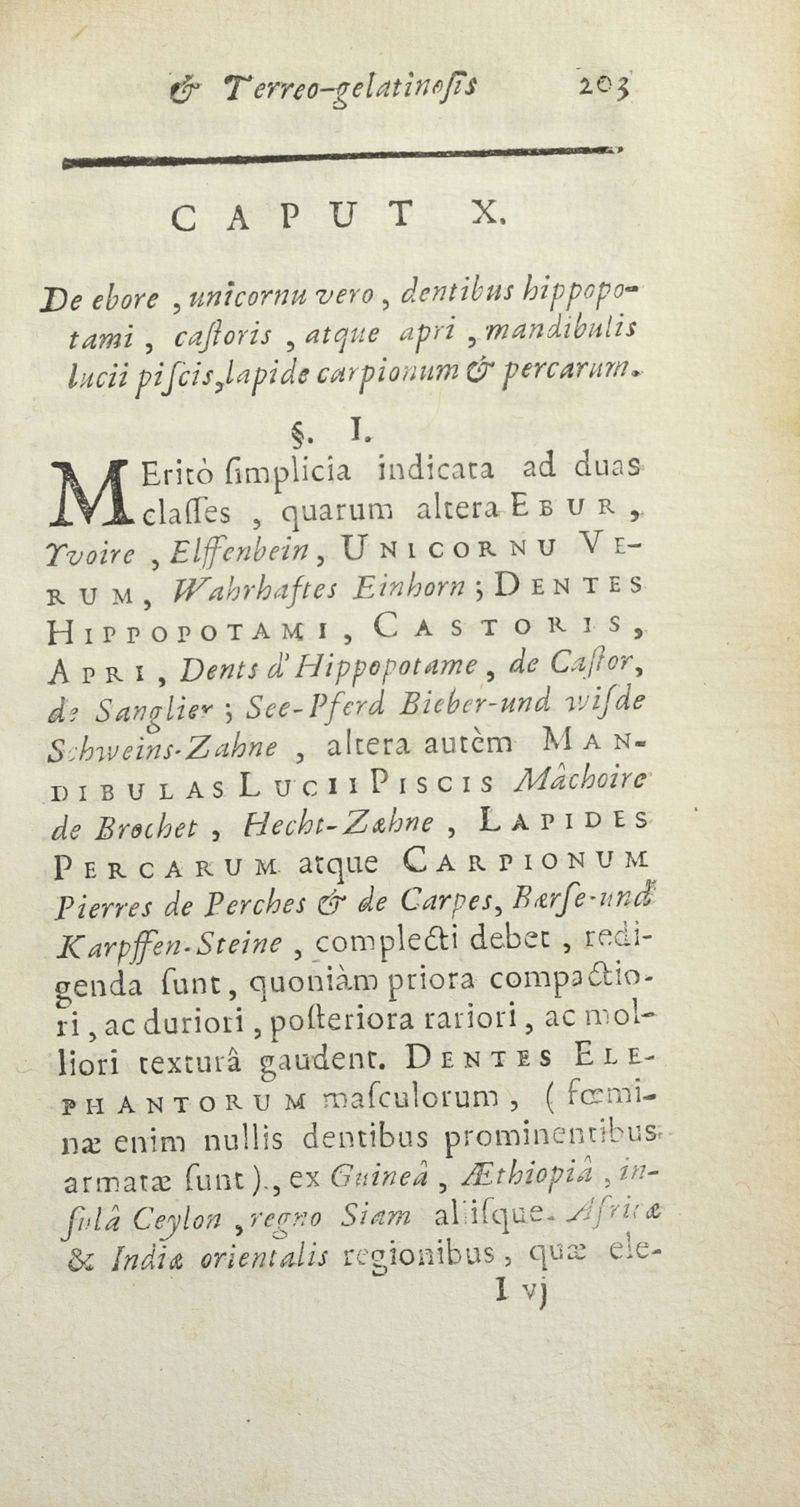 & Terreo-gelatinoſis 203
CAPUT X.
De ebore , unicornu vero , dentibus hippopo-
tami , caſtoris , atque apri , mandibulis
lucii piſcis, lapide carpionum & percarum.
§. I.
MEritò ſimplicia indicata ad duas
claſſes , quarum altera EBUR ,
Yvoire , Elffenbein , UNICORNU VE-
RUM , Wahrhaftes Einhorn ; DENTES
HIPPOPOTAMI , CASTORIS ,
APRI , Dents d'Hippopotame , de Caſtor,
de Sanglier ; See-Pferd Bieber-und wiſde
Schweins-Zahne , altera autèm MAN-
DIBULAS LUCII PISCIS Mâchoire
de Brochet , Hecht-Zæhne , LAPIDES
PERCARUM atque CARPIONUM
Pierres de Perches & de Carpes, Bærſe-und
Karpffen-Steine , complecti debet , redi-
genda ſunt, quoniàm priora compactio-
ri , ac duriori , poſteriora rariori , ac mol-
liori texturâ gaudent. DENTES ELE-
PHANTORUM maſculorum , ( fœmi-
næ enim nullis dentibus prominentibus
armatæ ſunt )., ex Guineâ , Æthiopiâ , in-
ſulâ Ceylon , regno Siam aliiſque Africæ
& Indiæ orientalis regionibus , quæ ele-
I vj